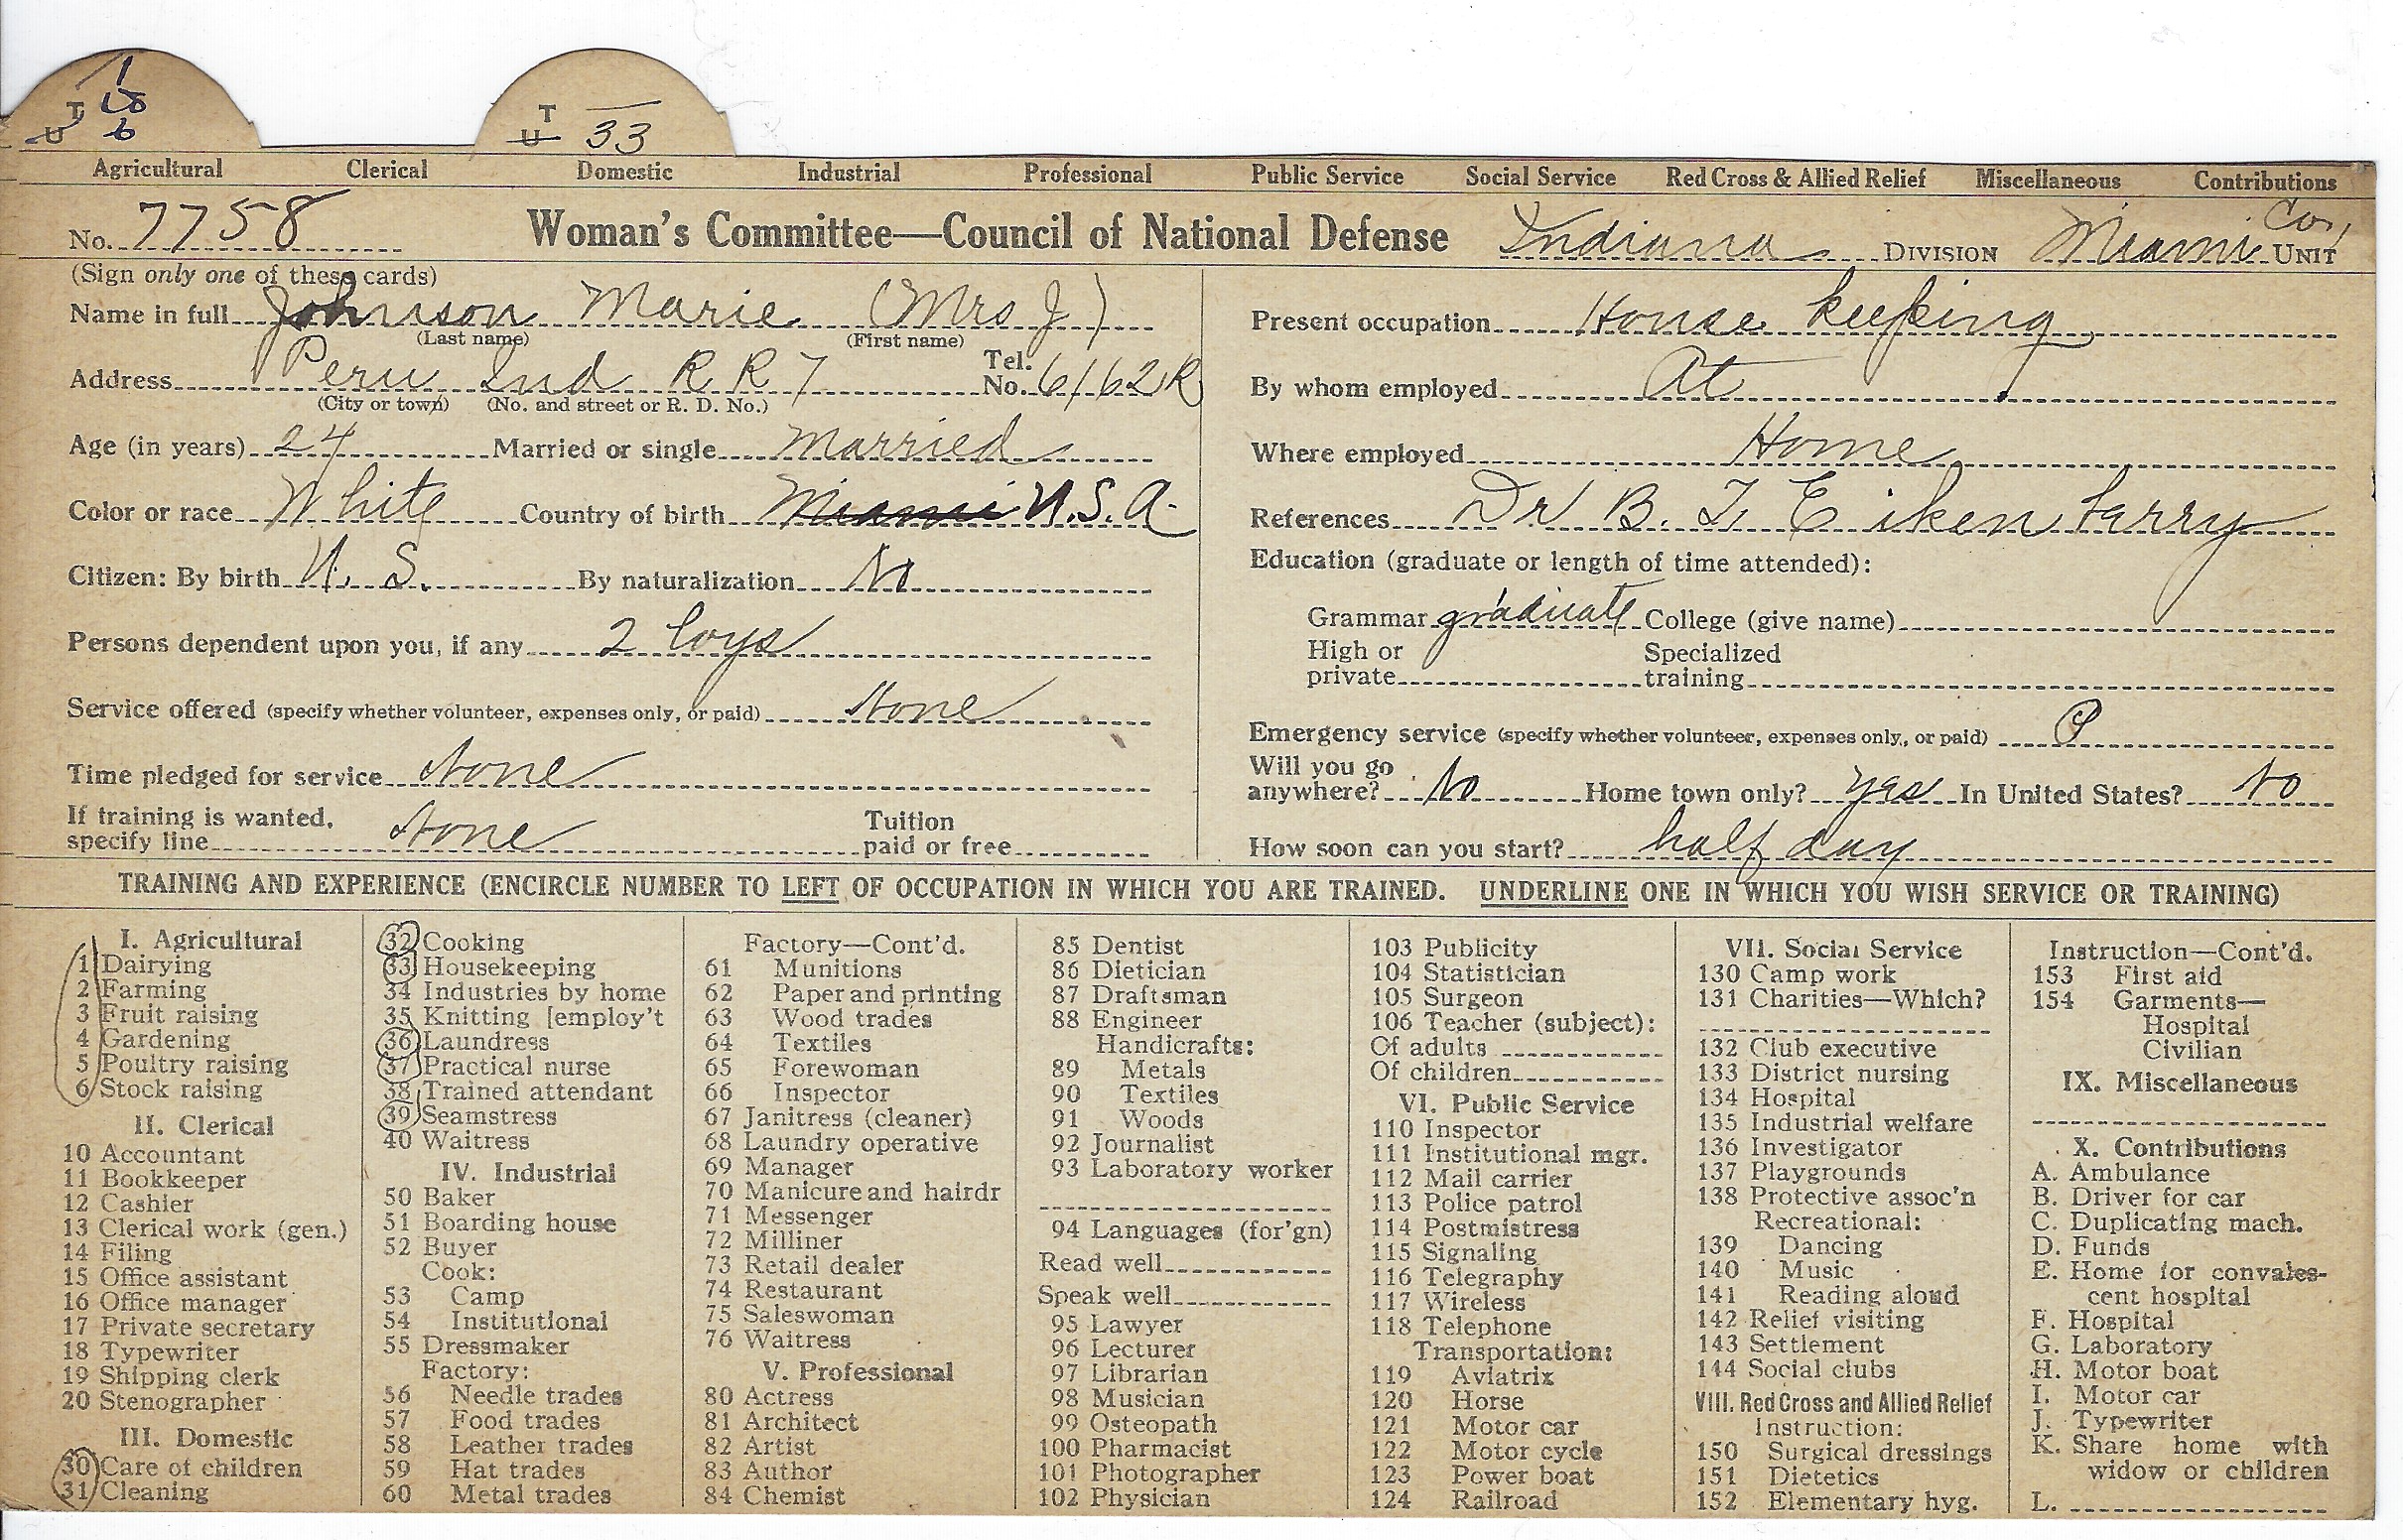 1
T to
U 6
T
U 33
Agricultural Clerical Domestic Industrial Professional Public Service Social Service Red Cross & Allied Relief Miscellaneous Contributions
No. 7758 Woman's Committee—Council of National Defense Indiana DIVISION Miami Co., UNIT
(Sign only one of these cards)
Name in full Johnson Marie (Mrs J)
(Last name) (First name)
Address Peru Ind R R 7 Tel. No. 6162R
(City or town) (No. and street or R. D. No.)
Age (in years) 24 Married or single Married
Color or race White Country of birth Miami U.S.A.
Citizen: By birth U. S. By naturalization No
Persons dependent upon you, if any 2 boys
Service offered (specify whether volunteer, expenses only, or paid) None
Time pledged for service None
If training is wanted, specify line None Tuition paid or free
Present occupation House keeping
By whom employed At
Where employed Home
References Dr B. F. Eikenberry
Education (graduate or length of time attended):
Grammar graduate College (give name)
High or private Specialized training
Emergency service (specify whether volunteer, expenses only, or paid) P
Will you go anywhere? No Home town only? yes In United States? No
How soon can you start? half day
TRAINING AND EXPERIENCE (ENCIRCLE NUMBER TO LEFT OF OCCUPATION IN WHICH YOU ARE TRAINED. UNDERLINE ONE IN WHICH YOU WISH SERVICE OR TRAINING)
I. Agricultural
1 Dairying
2 Farming
3 Fruit raising
4 Gardening
5 Poultry raising
6 Stock raising
II. Clerical
10 Accountant
11 Bookkeeper
12 Cashier
13 Clerical work (gen.)
14 Filing
15 Office assistant
16 Office manager
17 Private secretary
18 Typewriter
19 Shipping clerk
20 Stenographer
III. Domestic
30 Care of children
31 Cleaning
32 Cooking
33 Housekeeping
34 Industries by home
35 Knitting [employ't
36 Laundress
37 Practical nurse
38 Trained attendant
39 Seamstress
40 Waitress
IV. Industrial
50 Baker
51 Boarding house
52 Buyer
Cook:
53 Camp
54 Institutional
55 Dressmaker
Factory:
56 Needle trades
57 Food trades
58 Leather trades
59 Hat trades
60 Metal trades
Factory—Cont'd.
61 Munitions
62 Paper and printing
63 Wood trades
64 Textiles
65 Forewoman
66 Inspector
67 Janitress (cleaner)
68 Laundry operative
69 Manager
70 Manicure and hairdr
71 Messenger
72 Milliner
73 Retail dealer
74 Restaurant
75 Saleswoman
76 Waitress
V. Professional
80 Actress
81 Architect
82 Artist
83 Author
84 Chemist
85 Dentist
86 Dietician
87 Draftsman
88 Engineer
Handicrafts:
89 Metals
90 Textiles
91 Woods
92 Journalist
93 Laboratory worker
94 Languages (for'gn)
Read well
Speak well
95 Lawyer
96 Lecturer
97 Librarian
98 Musician
99 Osteopath
100 Pharmacist
101 Photographer
102 Physician
103 Publicity
104 Statistician
105 Surgeon
106 Teacher (subject):
Of adults
Of children
VI. Public Service
110 Inspector
111 Institutional mgr.
112 Mail carrier
113 Police patrol
114 Postmistress
115 Signaling
116 Telegraphy
117 Wireless
118 Telephone
Transportation:
119 Aviatrix
120 Horse
121 Motor car
122 Motor cycle
123 Power boat
124 Railroad
VII. Social Service
130 Camp work
131 Charities—Which?
132 Club executive
133 District nursing
134 Hospital
135 Industrial welfare
136 Investigator
137 Playgrounds
138 Protective assoc'n
Recreational:
139 Dancing
140 Music
141 Reading aloud
142 Relief visiting
143 Settlement
144 Social clubs
VIII. Red Cross and Allied Relief
Instruction:
150 Surgical dressings
151 Dietetics
152 Elementary hyg.
Instruction—Cont'd.
153 First aid
154 Garments—
Hospital
Civilian
IX. Miscellaneous
X. Contributions
A. Ambulance
B. Driver for car
C. Duplicating mach.
D. Funds
E. Home for convales-
cent hospital
F. Hospital
G. Laboratory
H. Motor boat
I. Motor car
J. Typewriter
K. Share home with
widow or children
L.